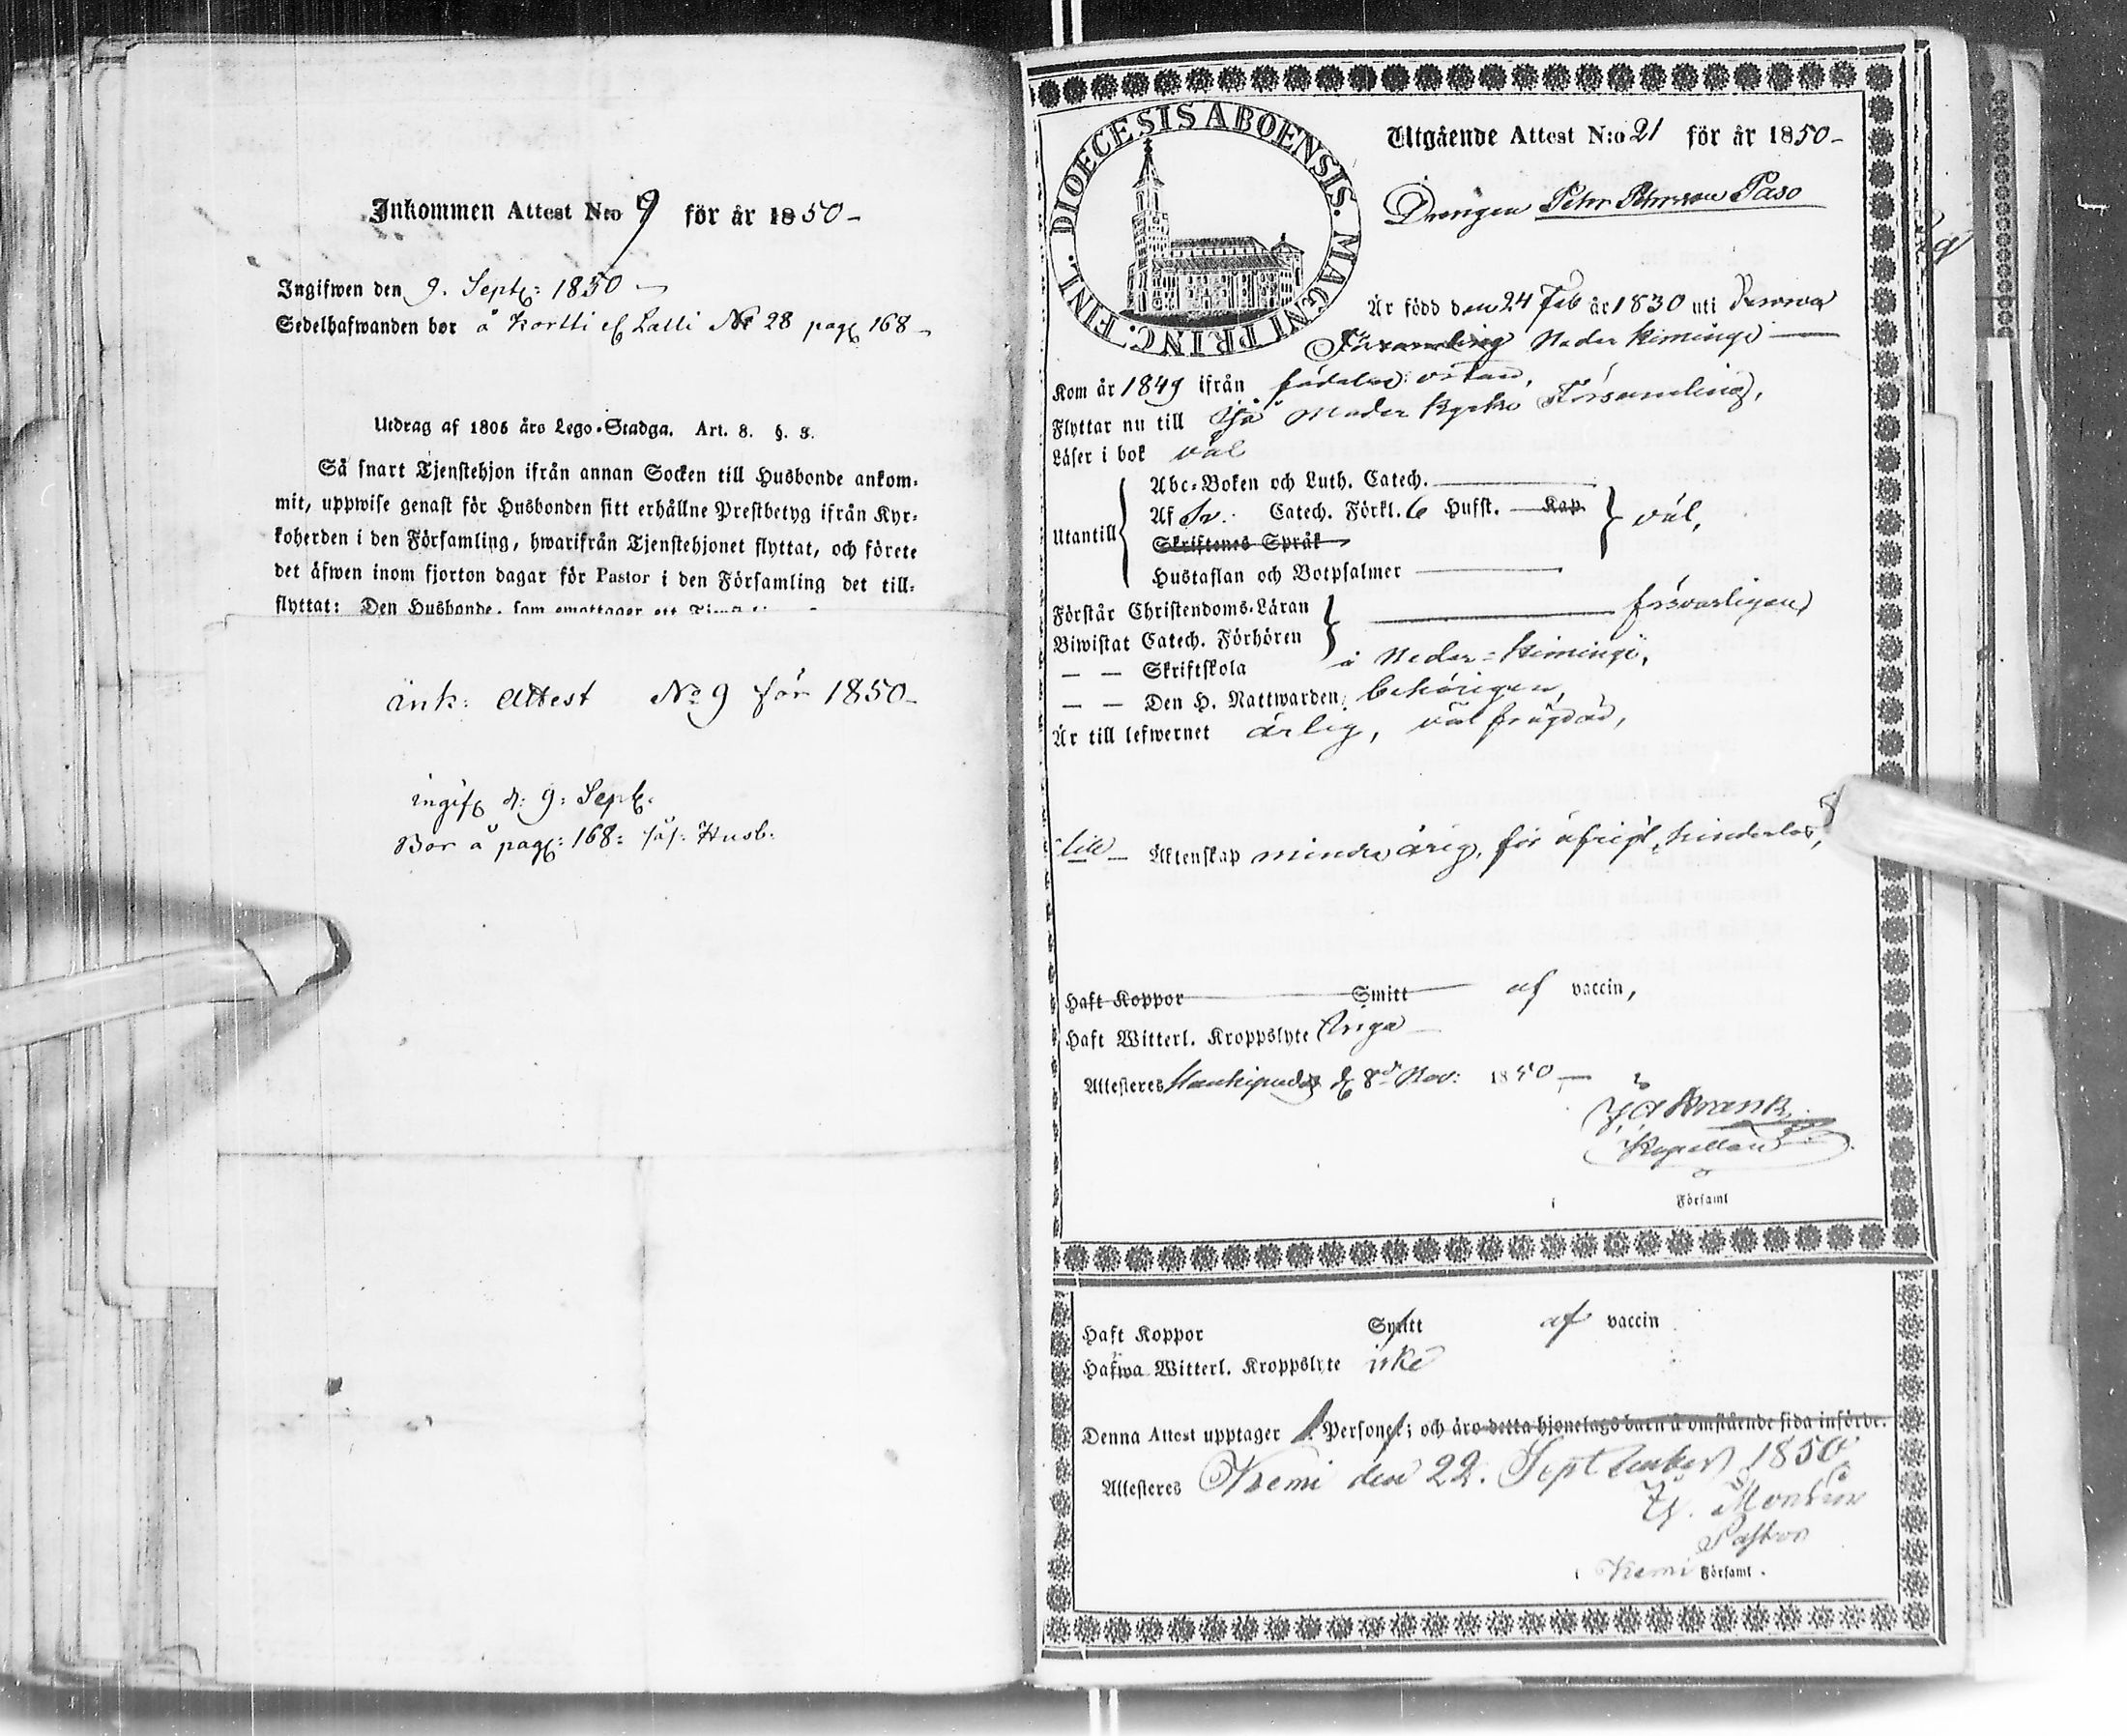 Inkommen Attest N:o 9 för år 1850 -
Ingifwen den 9. Sept: 1850 -
Sedelhafwanden bor å Kortti el Lalli No 28 pag 168 -
Utdrag af 1805 års Lego-Stadga. Art. 8. §. 3.
Så snart Tjenstehjon ifrån annan Socken till Husbonde ankom-
mit, uppwise genast för Husbonden sitt erhållne Prestbetyg ifrån Kyr-
koherden i den Församling, hwarifrån Tjenstehjonet flyttat, och förete
det äfwen inom fjorton dagar för Pastor i den Församling det till-
flyttat: Den Husbonde, som emottager ett
ink: Attest No 9 för 1850 -
ingif d: 9: Sept.
Bor å pag: 168: Husb:
DIOECESIS ABOENSIS. MAGNI PRINC. FINL.
Utgående Attest N:o 21 för år 1850 -
Drengen Petter Pettersson Paso
Är född den 24 Feb år 1830 uti
Församling Neder Kiminge
Kom år 1849 ifrån födelse orten,
Flyttar nu till Ijo Moder Kyrko Församling,
Läser i bok väl
Utantill
Abc-Boken och Luth. Catech.
Af Sv. Catech. Förkl. 6 Hufst. Kap
Skriftenes Språk
Hustaflan och Botpsalmer
väl,
Förstår Christendoms-Läran försvarligen,
Biwistat Catech. Förhören
— — Skriftskola i Neder-Kiminge,
— — Den H. Nattwarden, behörigen,
Är till lefwernet ärlig, väl frägdad,
till Äktenskap minderårig, för öfrigt hinderlös,
Haft Koppor Smitt af vaccin,
Haft Witterl. Kroppslyte Inga
Attesteres Haukipudas d 8de Nov: 1850 —
J A Frank
Kapellan
Församl
Haft Koppor Smitt af vaccin
Hafwa Witterl. Kroppslyte icke
Denna Attest upptager 1 Person; och äro detta hjonelags barn å omstående sida införde.
Attesteres Kemi den 22. September 1850
Pastor
i Kemi Församl.